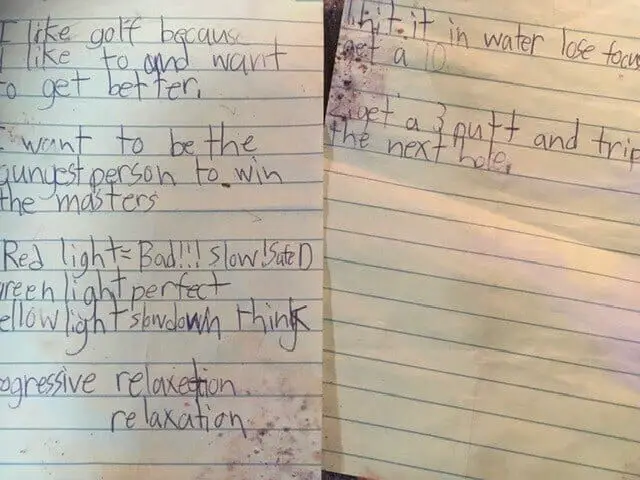 I like golf becaus
I like to and want
to get better.
I want to be the
yungest person to win
the masters
Red light = Bad!!! slow! Safe D
reen light perfect
ellow light slowdown think
ogressive relaxetion
relaxation
I hit it in water lose focus
get a 10
2. get a 3 putt and trip
the next hole.